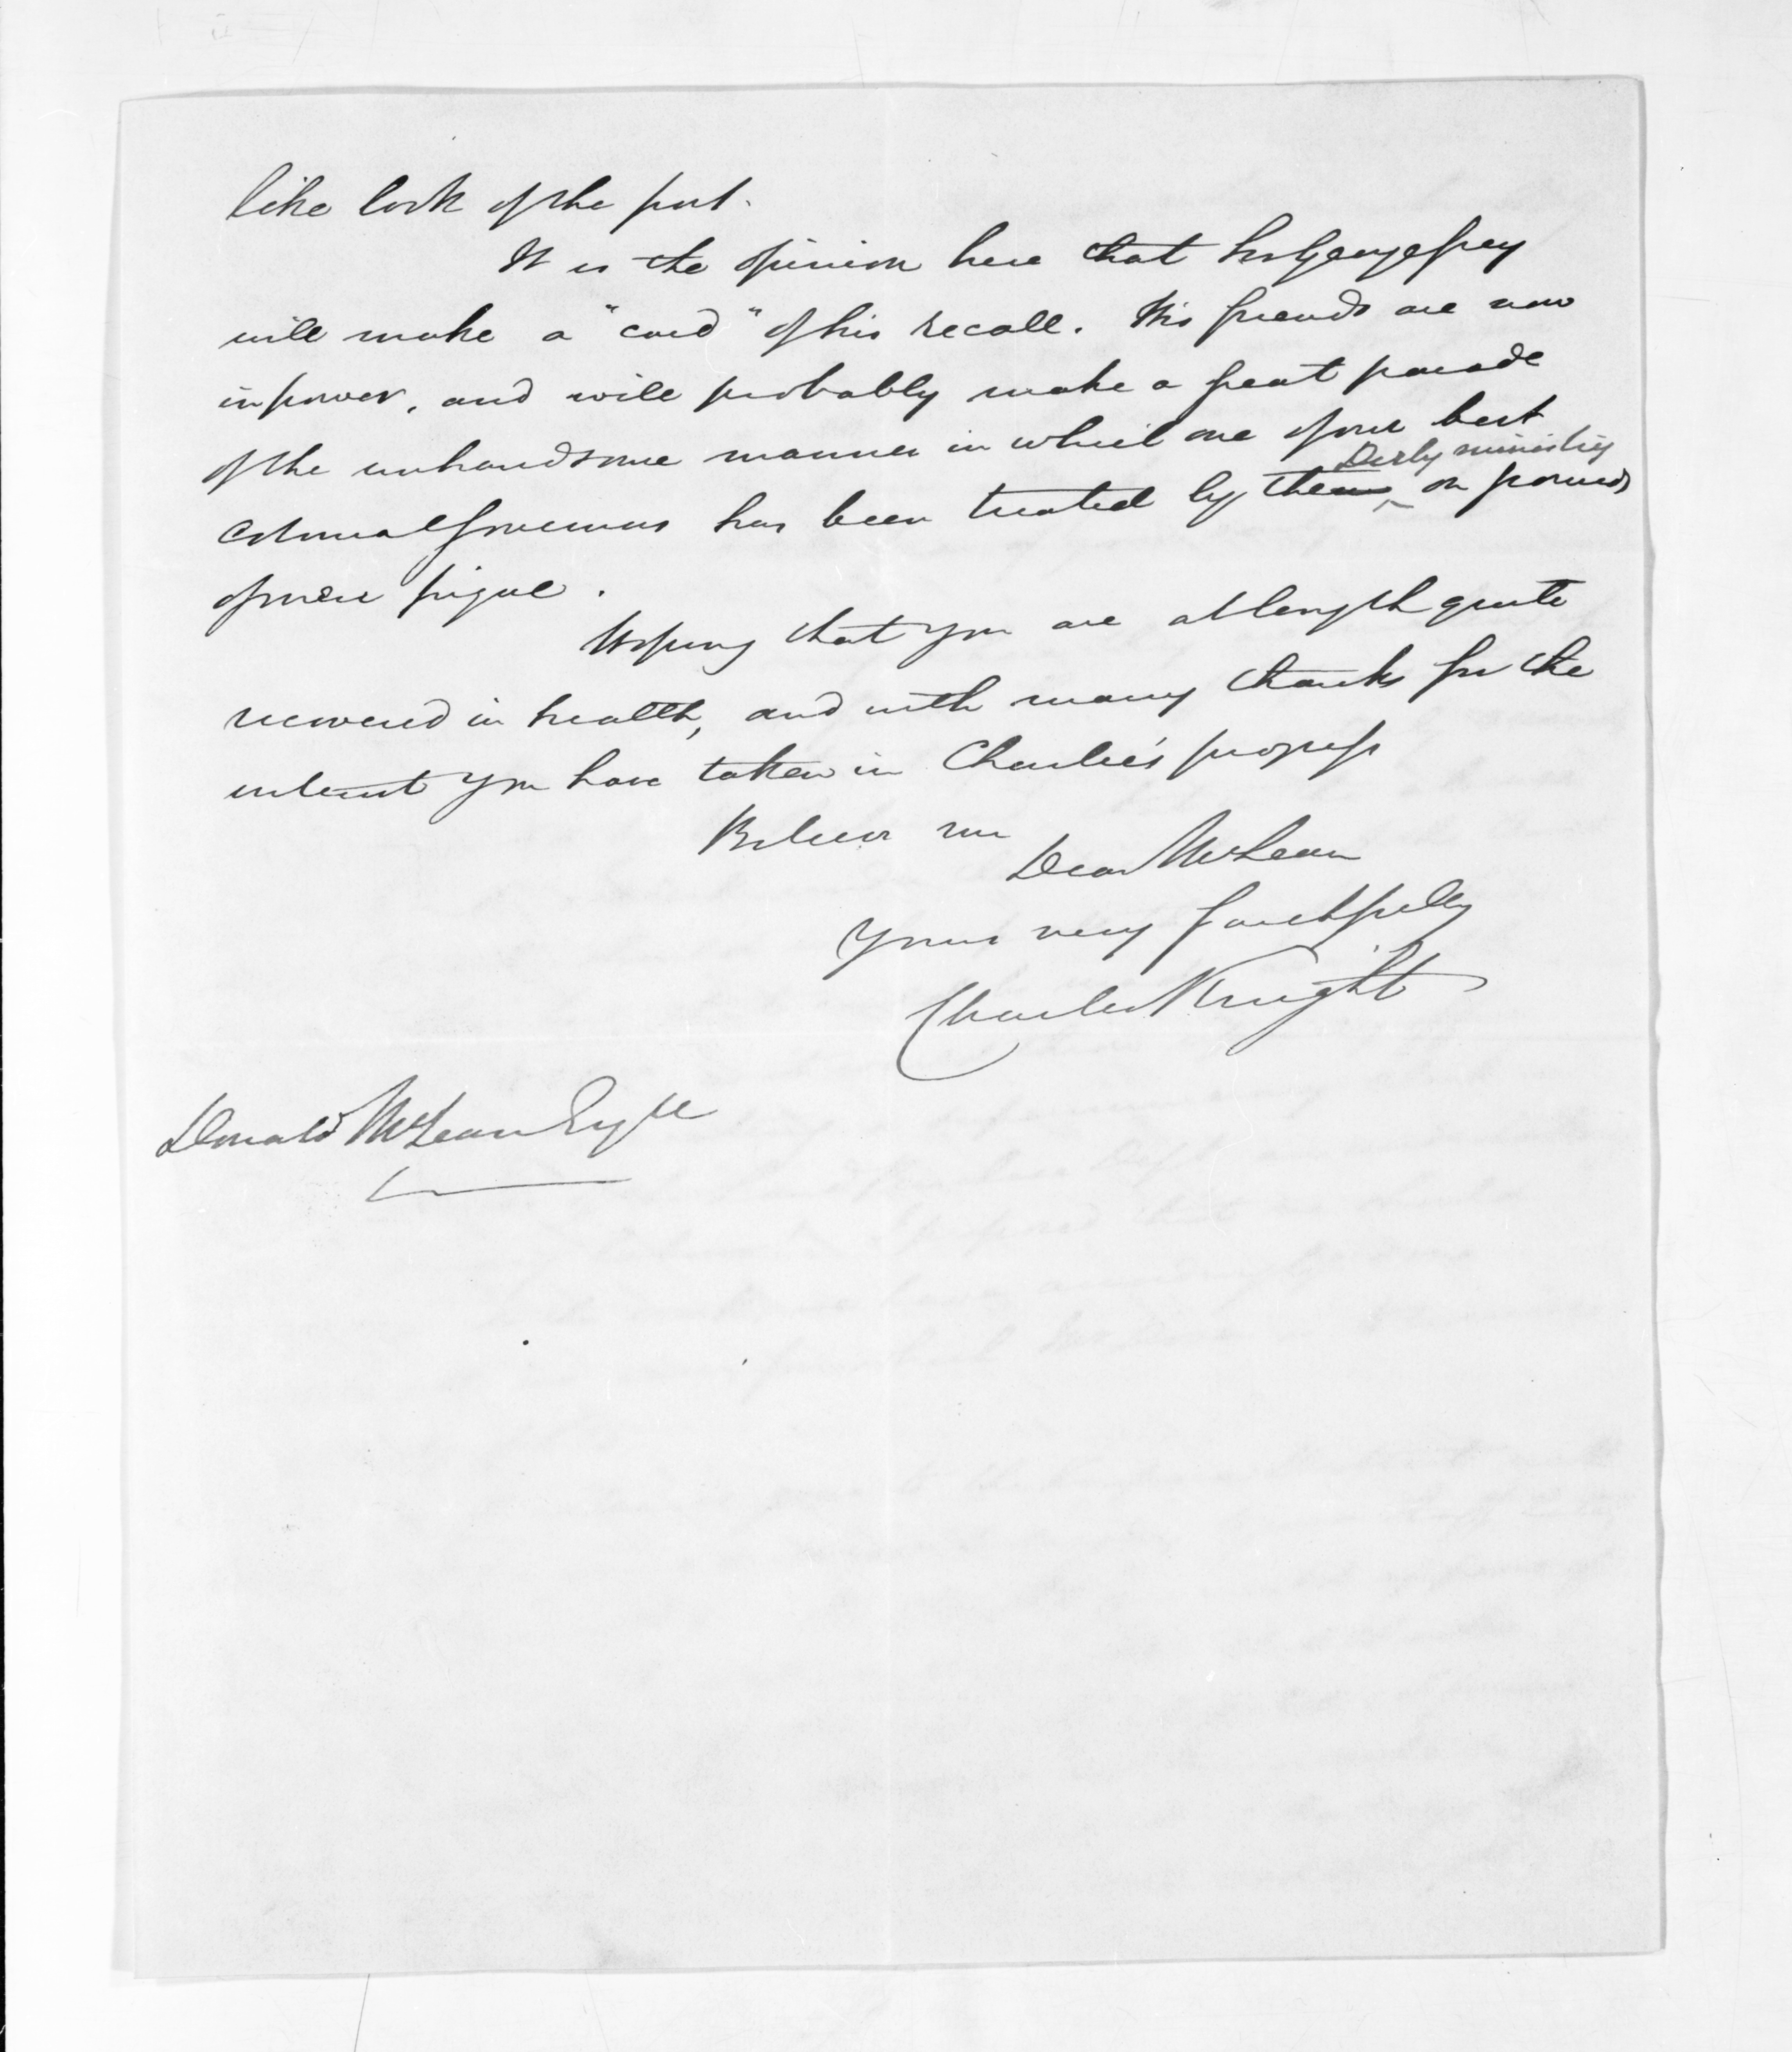 like look of the port.
It is the opinion here that Sir George Grey
will make a "card" of his recall. His friends are now
in power, and will probably make a great parade
of the unhandsome manner in which one of our best
Derby ministry
Colonial Governors has been treated by them on grounds
of mere pique.
Hoping that you are at length quite
recovered in health, and with many thanks for the
interest you have taken in Charlie's progress
Believe me
Dear McLean
Yours very faithfully
Charles Knight
Donald McLean Esqre